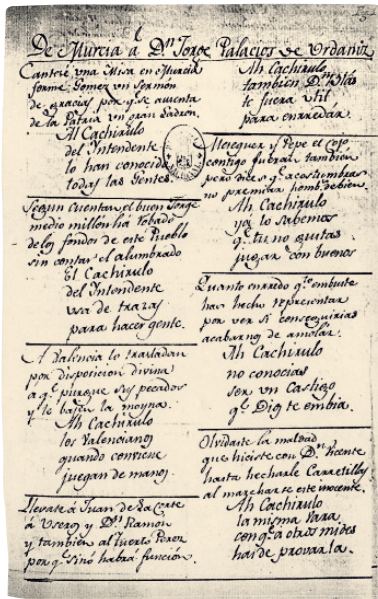 De Murcia á Dn. Jorge Palacios de Urdaniz
Cantese una Misa en Murcia
forme Gomez un Sermón
de gracias por qe. se ausenta
de la Patria un gran Ladron.
Al Cachirulo
del Intendente
lo han conocido
todas las Gentes.
Segun cuentan, el buen Jorge
medio millón há robado
de los fondos de este Pueblo
sin contar el alumbrado
El Cachirulo
del Intendente
usa de trazas
para hacer gente.
A Valencia lo trasladan
por disposicion divina
a qe. purgue sus pecados
y le bajen la moyna.
Ah Cachirulo
los Valencianos
quando conviene
juegan de manos.
Llevate á Juan de la Corte
á Useros y Dn. Ramon
y tambien al Tuerto Perez
por qe. sinó habrá función.
Ah Cachirulo
tambien Dn. Blas
te fuera util
para enrredar.
Mereguer y Pepe el Cojo
contigo fueran tambien
pero dices qe. acostumbras
no premiar homb. de bien.
Ah Cachirulo
ya lo sabemos
qe. tu no gustas
jugar con buenos
Quanto enrredo qe. embuste
has hecho representar
por ver si conseguirias
acabarnos de amolar.
Ah Cachirulo
no conocias
ser un Castigo
qe. Dios te embia.
Olvidaste la maldad
que hiciste con Dn. Vicente
hasta hecharle Carretillas
al marcharse este inocente.
Ah Cachirulo
la misma Vara
con qe. á otros mides
has de provarla.